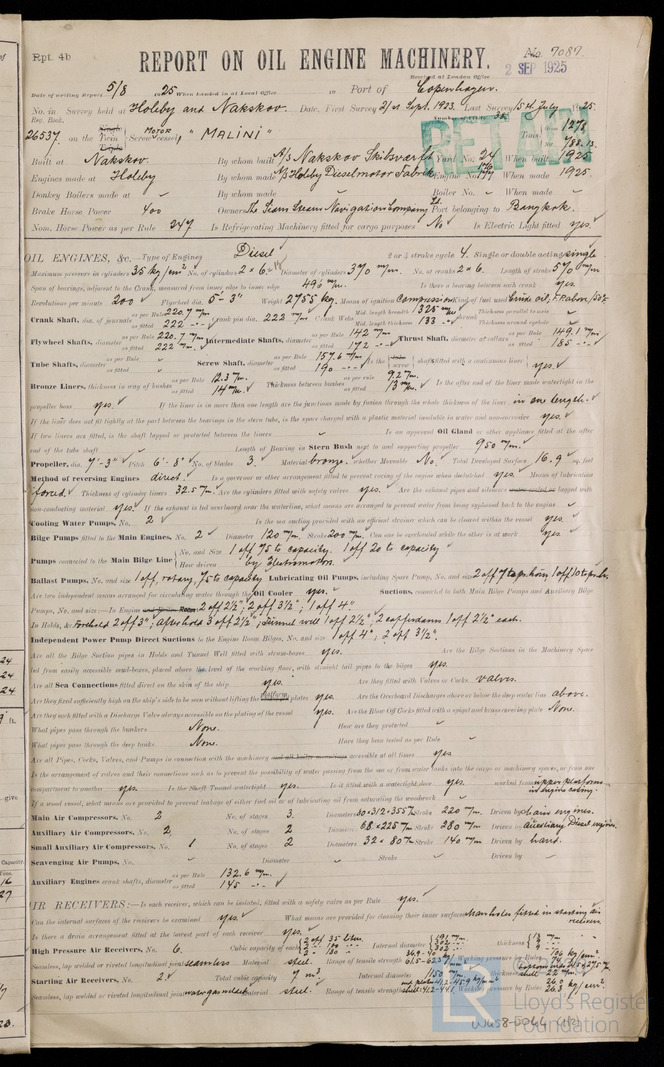 Rpt. 4b
REPORT ON OIL ENGINE MACHINERY.
No. 7087
2 SEP 1925
Received at London Office
Date of writing Report 5/8 1925 When handed in at Local Office 19 Port of Copenhagen.
No. in Survey held at Holeby and Nakskov. Date, First Survey 21st Sept. 1923. Last Survey 15th July 1925.
Reg. Book.
26537 on the Twin Screw vessel MOTOR "MALINI"
Tons
RETAIN
Built at Nakskov. By whom built A/S Nakskov Skibsværft Yard No. 24 When built 1925
Engines made at Holeby By whom made A/S Holeby Dieselmotor Fabrik Engine No. When made 1925.
Donkey Boilers made at By whom made Boiler No. When made
Brake Horse Power 400 Owners The Siam Steam Navigation Company Ld. Port belonging to Bangkok.
Nom. Horse Power as per Rule 247 Is Refrigerating Machinery fitted for cargo purposes No Is Electric Light fitted yes.
OIL ENGINES, &c.—Type of Engines Diesel 2 or 4 stroke cycle 4. Single or double acting single
Maximum pressure in cylinders 35 kg/cm² No. of cylinders 2 × 6. Diameter of cylinders 370 m/m. No. of cranks 2 × 6. Length of stroke 570 m/m.
Span of bearings, adjacent to the Crank, measured from inner edge to inner edge 496 m/m. Is there a bearing between each crank yes.
Revolutions per minute 200 Flywheel dia. 5'-3" Weight 2755 kg. Means of ignition Compression Kind of fuel used Crude oil,
Crank Shaft, dia. of journals as per Rule 220.7 m/m as fitted 222 Crank pin dia. 222 m/m. Crank Webs Mid. length breadth 325 m/m Mid. length thickness 133 Thickness parallel to axis
Flywheel Shafts, diameter as per Rule 220.7 m/m as fitted 222 m/m. Intermediate Shafts, diameter as per Rule 142 m/m as fitted 172 Thrust Shaft, diameter at collars as per Rule 149.1 m/m as fitted 185
Tube Shafts, diameter as per Rule as fitted Screw Shaft, diameter as per Rule 157.6 m/m as fitted 190 Is the shaft fitted with a continuous liner yes.
Bronze Liners, thickness in way of bushes as per Rule 12.3 m/m. as fitted 14 m/m. Thickness between bushes as per rule 9.2 m/m. as fitted 13 m/m. Is the after end of the liner made watertight in the
propeller boss yes. If the liner is in more than one length are the junctions made by fusion through the whole thickness of the liner in one length.
If the liner does not fit tightly at the part between the bearings in the stern tube, is the space charged with a plastic material insoluble in water and non-corrosive yes.
If two liners are fitted, is the shaft lapped or protected between the liners Is an approved Oil Gland or other appliance fitted at the after
end of the tube shaft Length of Bearing in Stern Bush next to and supporting propeller 950 m/m.
Propeller, dia. 7'-3" Pitch 6'-8" No. of blades 3. Material bronze. whether Moveable No. Total Developed Surface 16.9 sq. feet
Method of reversing Engines direct. Is a governor or other arrangement fitted to prevent racing of the engine when declutched yes. Means of lubrication
forced. Thickness of cylinder liners 32.5 m/m. Are the cylinders fitted with safety valves yes. Are the exhaust pipes and silencers lagged with
non-conducting material yes. If the exhaust is led overboard near the waterline, what means are arranged to prevent water from being syphoned back to the engine
Cooling Water Pumps, No. 2 Is the sea suction provided with an efficient strainer which can be cleared within the vessel yes.
Bilge Pumps fitted to the Main Engines, No. 2 Diameter 120 m/m. Stroke 200 m/m. Can one be overhauled while the other is at work yes.
Pumps connected to the Main Bilge Line No. and Size 1 off 75 to capacity. 1 off 20 to capacity How driven by Electromotor.
Ballast Pumps, No. and size 1 off, rotary, 75 to capacity. Lubricating Oil Pumps, including Spare Pump, No. and size
Are two independent means arranged for circulating water through the Oil Cooler yes. Suctions, connected to both Main Bilge Pumps and Auxiliary Bilge
Pumps, No. and size:—In Engine Room 2 off 2½", 2 off 3½", 1 off 4"
In Holds, &c. Forehold 2 off 3", Aftershold 3 off 2½", Tunnel well 1 off 2½", 2 cofferdams 1 off 2½" each.
Independent Power Pump Direct Suctions to the Engine Room Bilges, No. and size 1 off 4", 2 off 3½".
Are all the Bilge Suction pipes in Holds and Tunnel Well fitted with strum-boxes yes. Are the Bilge Suctions in the Machinery Space
led from easily accessible mud-boxes, placed above the level of the working floor, with straight tail pipes to the bilges yes.
Are all Sea Connections fitted direct on the skin of the ship yes. Are they fitted with Valves or Cocks valves.
Are they fixed sufficiently high on the ship's side to be seen without lifting the platform plates yes. Are the Overboard Discharges above or below the deep water line above.
Are they each fitted with a Discharge Valve always accessible on the plating of the vessel yes. Are the Blow Off Cocks fitted with a spigot and brass covering plate None.
What pipes pass through the bunkers None. How are they protected
What pipes pass through the deep tanks None. Have they been tested as per Rule
Are all Pipes, Cocks, Valves, and Pumps in connection with the machinery accessible at all times yes
Is the arrangement of valves and their connections such as to prevent the possibility of water passing from the sea or from water tanks into the cargo or machinery spaces, or from one
compartment to another yes. Is the Shaft Tunnel watertight yes. Is it fitted with a watertight door yes. worked from upper platform in engine casing.
If a wood vessel, what means are provided to prevent leakage of either fuel oil or lubricating oil from saturating the woodwork
Main Air Compressors, No. 2 No. of stages 3. Diameters Stroke 220 m/m. Driven by main engines.
Auxiliary Air Compressors, No. 2, No. of stages 2 Diameters 68 × 225 m/m Stroke 280 m/m Driven by auxiliary Diesel engine.
Small Auxiliary Air Compressors, No. 1 No. of stages 2 Diameters 32 × 80 m/m Stroke 140 m/m Driven by hand.
Scavenging Air Pumps, No. Diameter Stroke Driven by
Auxiliary Engines crank shafts, diameter as per Rule 132.6 m/m. as fitted 145
AIR RECEIVERS:—Is each receiver, which can be isolated, fitted with a safety valve as per Rule yes.
Can the internal surfaces of the receivers be examined yes. What means are provided for cleaning their inner surfaces manholes fitted in starting air receivers.
Is there a drain arrangement fitted at the lowest part of each receiver yes.
High Pressure Air Receivers, No. 6. Cubic capacity of each Internal diameter thickness
Seamless, lap welded or riveted longitudinal joint seamless Material steel. Range of tensile strength
Starting Air Receivers, No. 2. Total cubic capacity 7 m³. Internal diameter 1150 m/m.
Seamless, lap welded or riveted longitudinal joint Material steel. Range of tensile strength
Lloyd's Register
Foundation